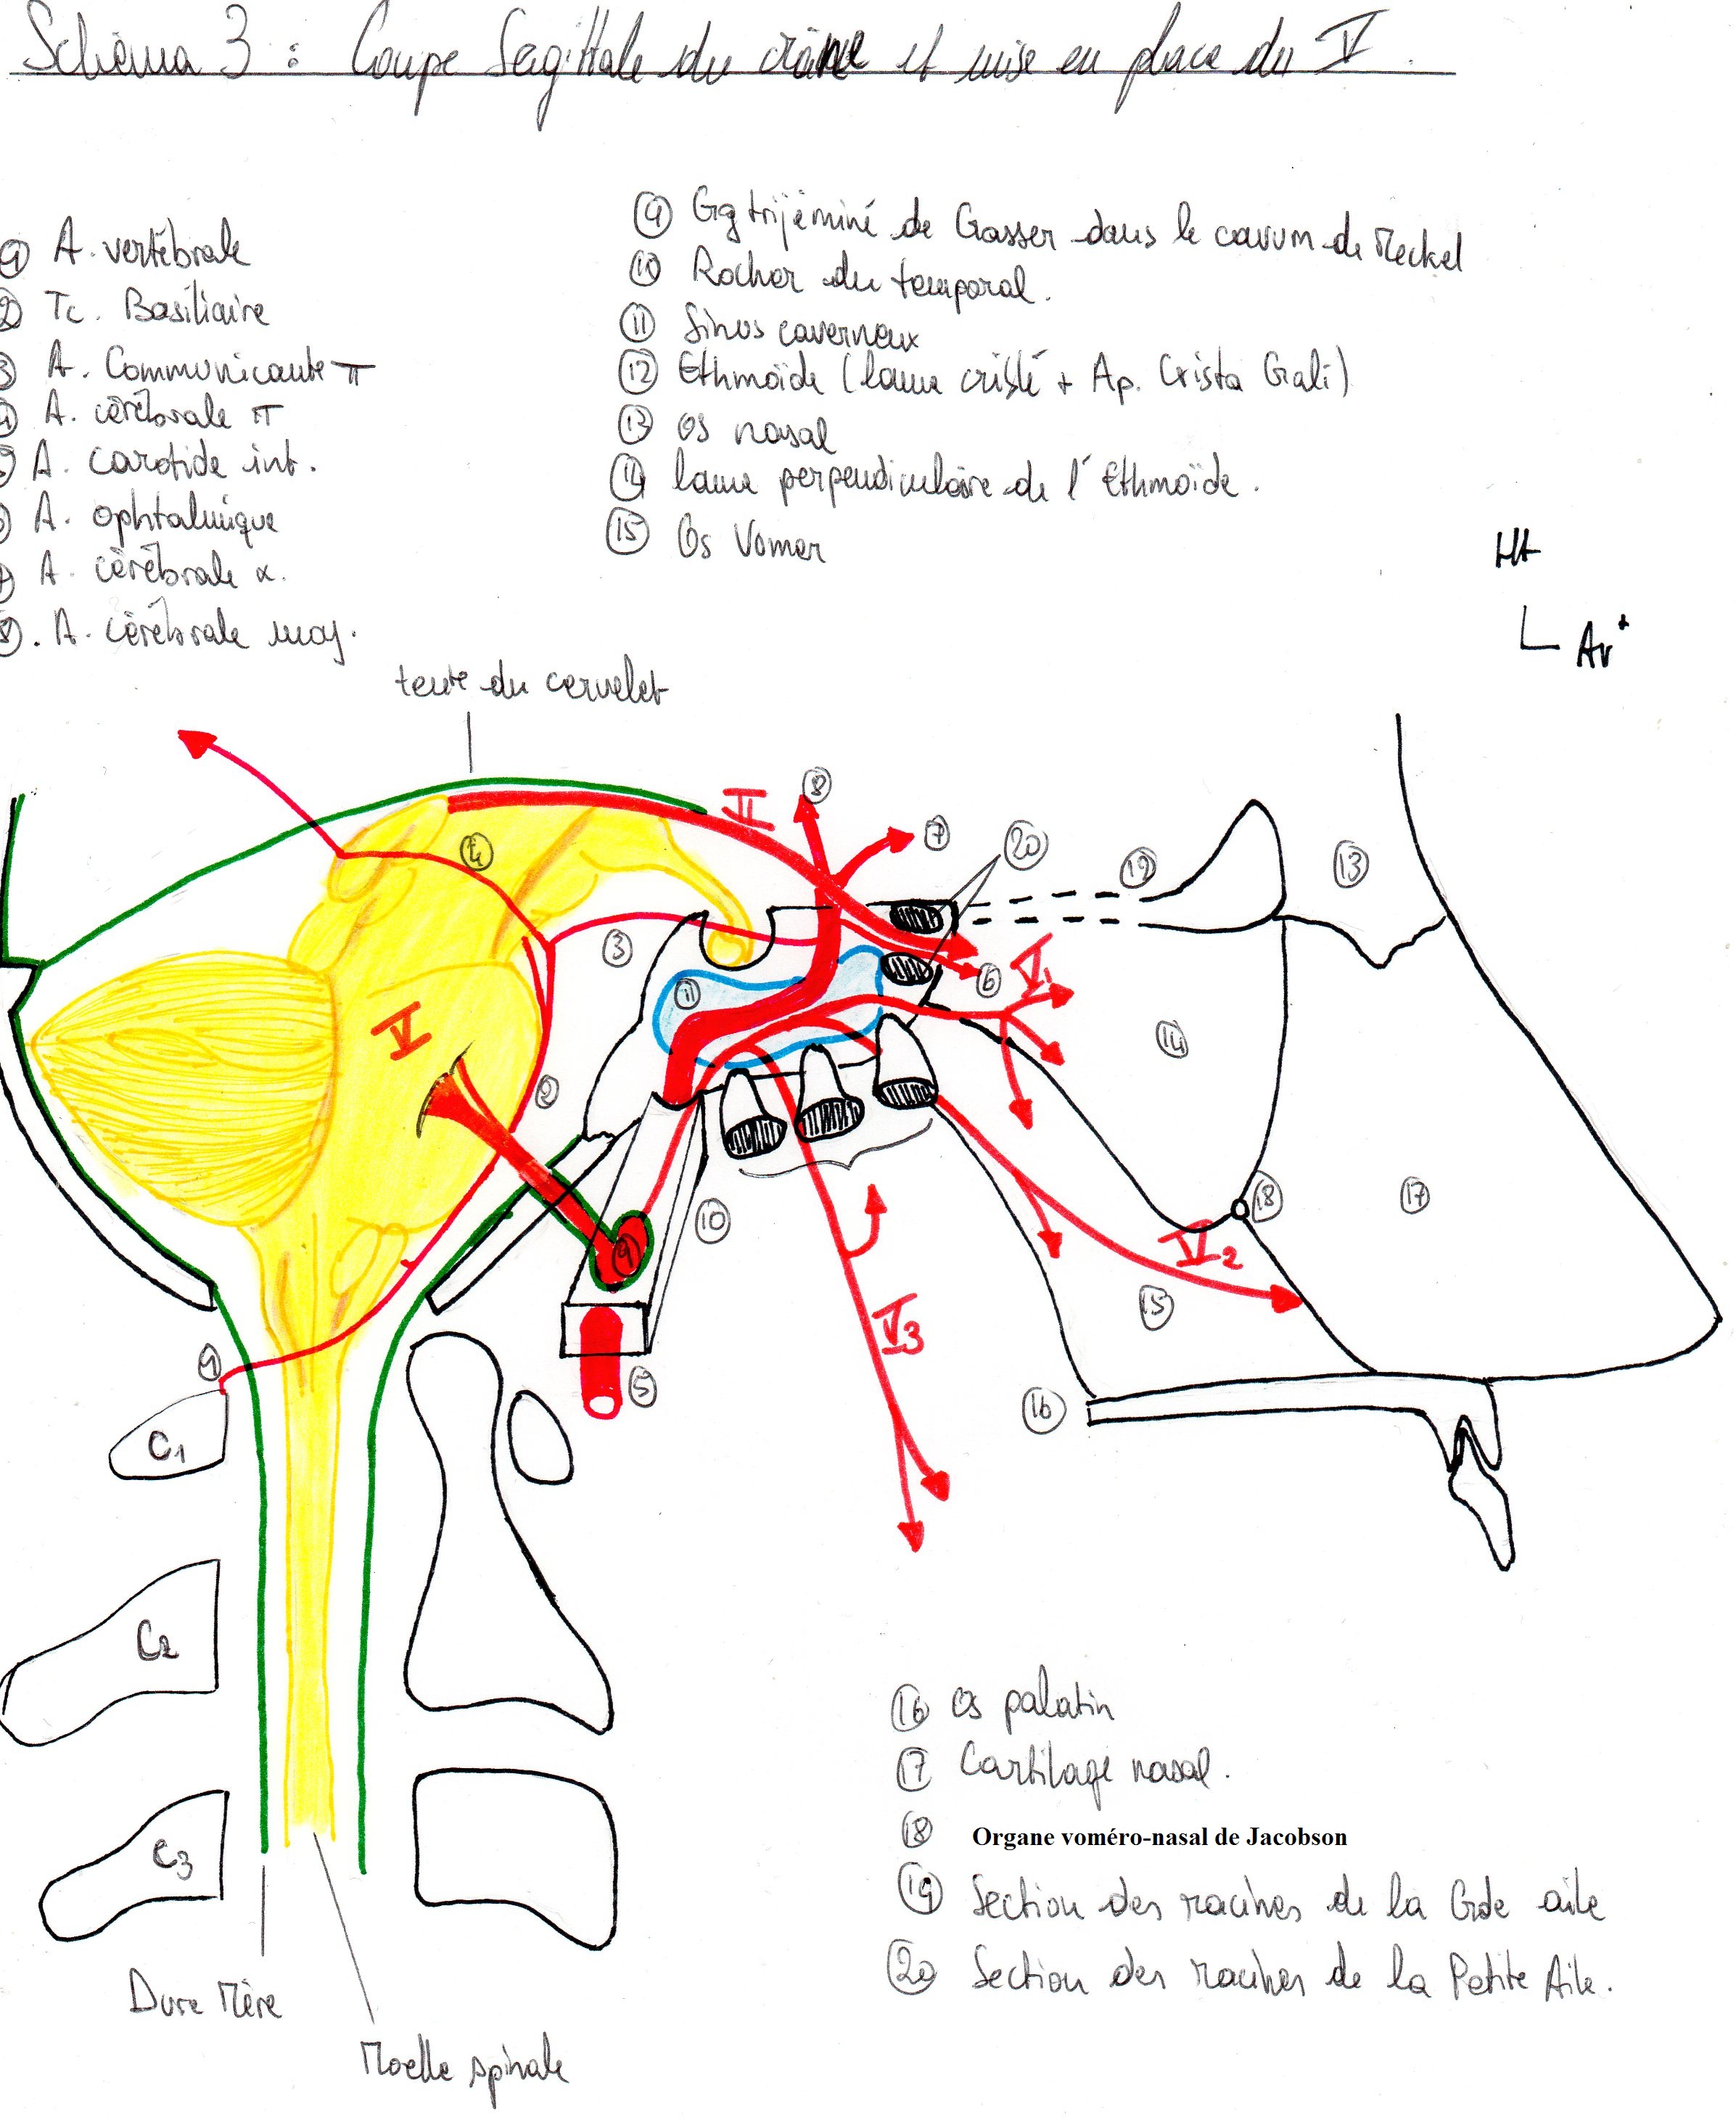 Schéma 3 : Coupe Sagittale du crâne et mise en place du V.
① A. vertébrale
② Tc. Basiliaire
③ A. Communicante π
④ A. cérébrale π
⑤ A. carotide int.
⑥ A. ophtalmique
⑦ A. cérébrale α.
⑧. A. cérébrale moy.
⑨ Gg trijéminé de Gasser dans le cavum de Meckel
⑩ Rocher du temporal.
⑪ Sinus caverneux
⑫ Ethmoïde (lame criblé + Ap. Crista Gali)
⑬ Os nasal
⑭ lame perpendiculaire de l'Ethmoïde.
⑮ Os Vomer
Ht
Av+
tente du cervelet
II
8
7
20
4
12
13
3
6
V1
11
V
14
2
18
17
10
9
V2
15
V3
1
5
16
C1
C2
C3
⑯ Os palatin
⑰ Cartilage nasal.
⑱ Organe voméro-nasal de Jacobson
⑲ Section des racines de la Gde aile
⑳ Section des racines de la Petite Aile.
Dure Mère
Moelle spinale